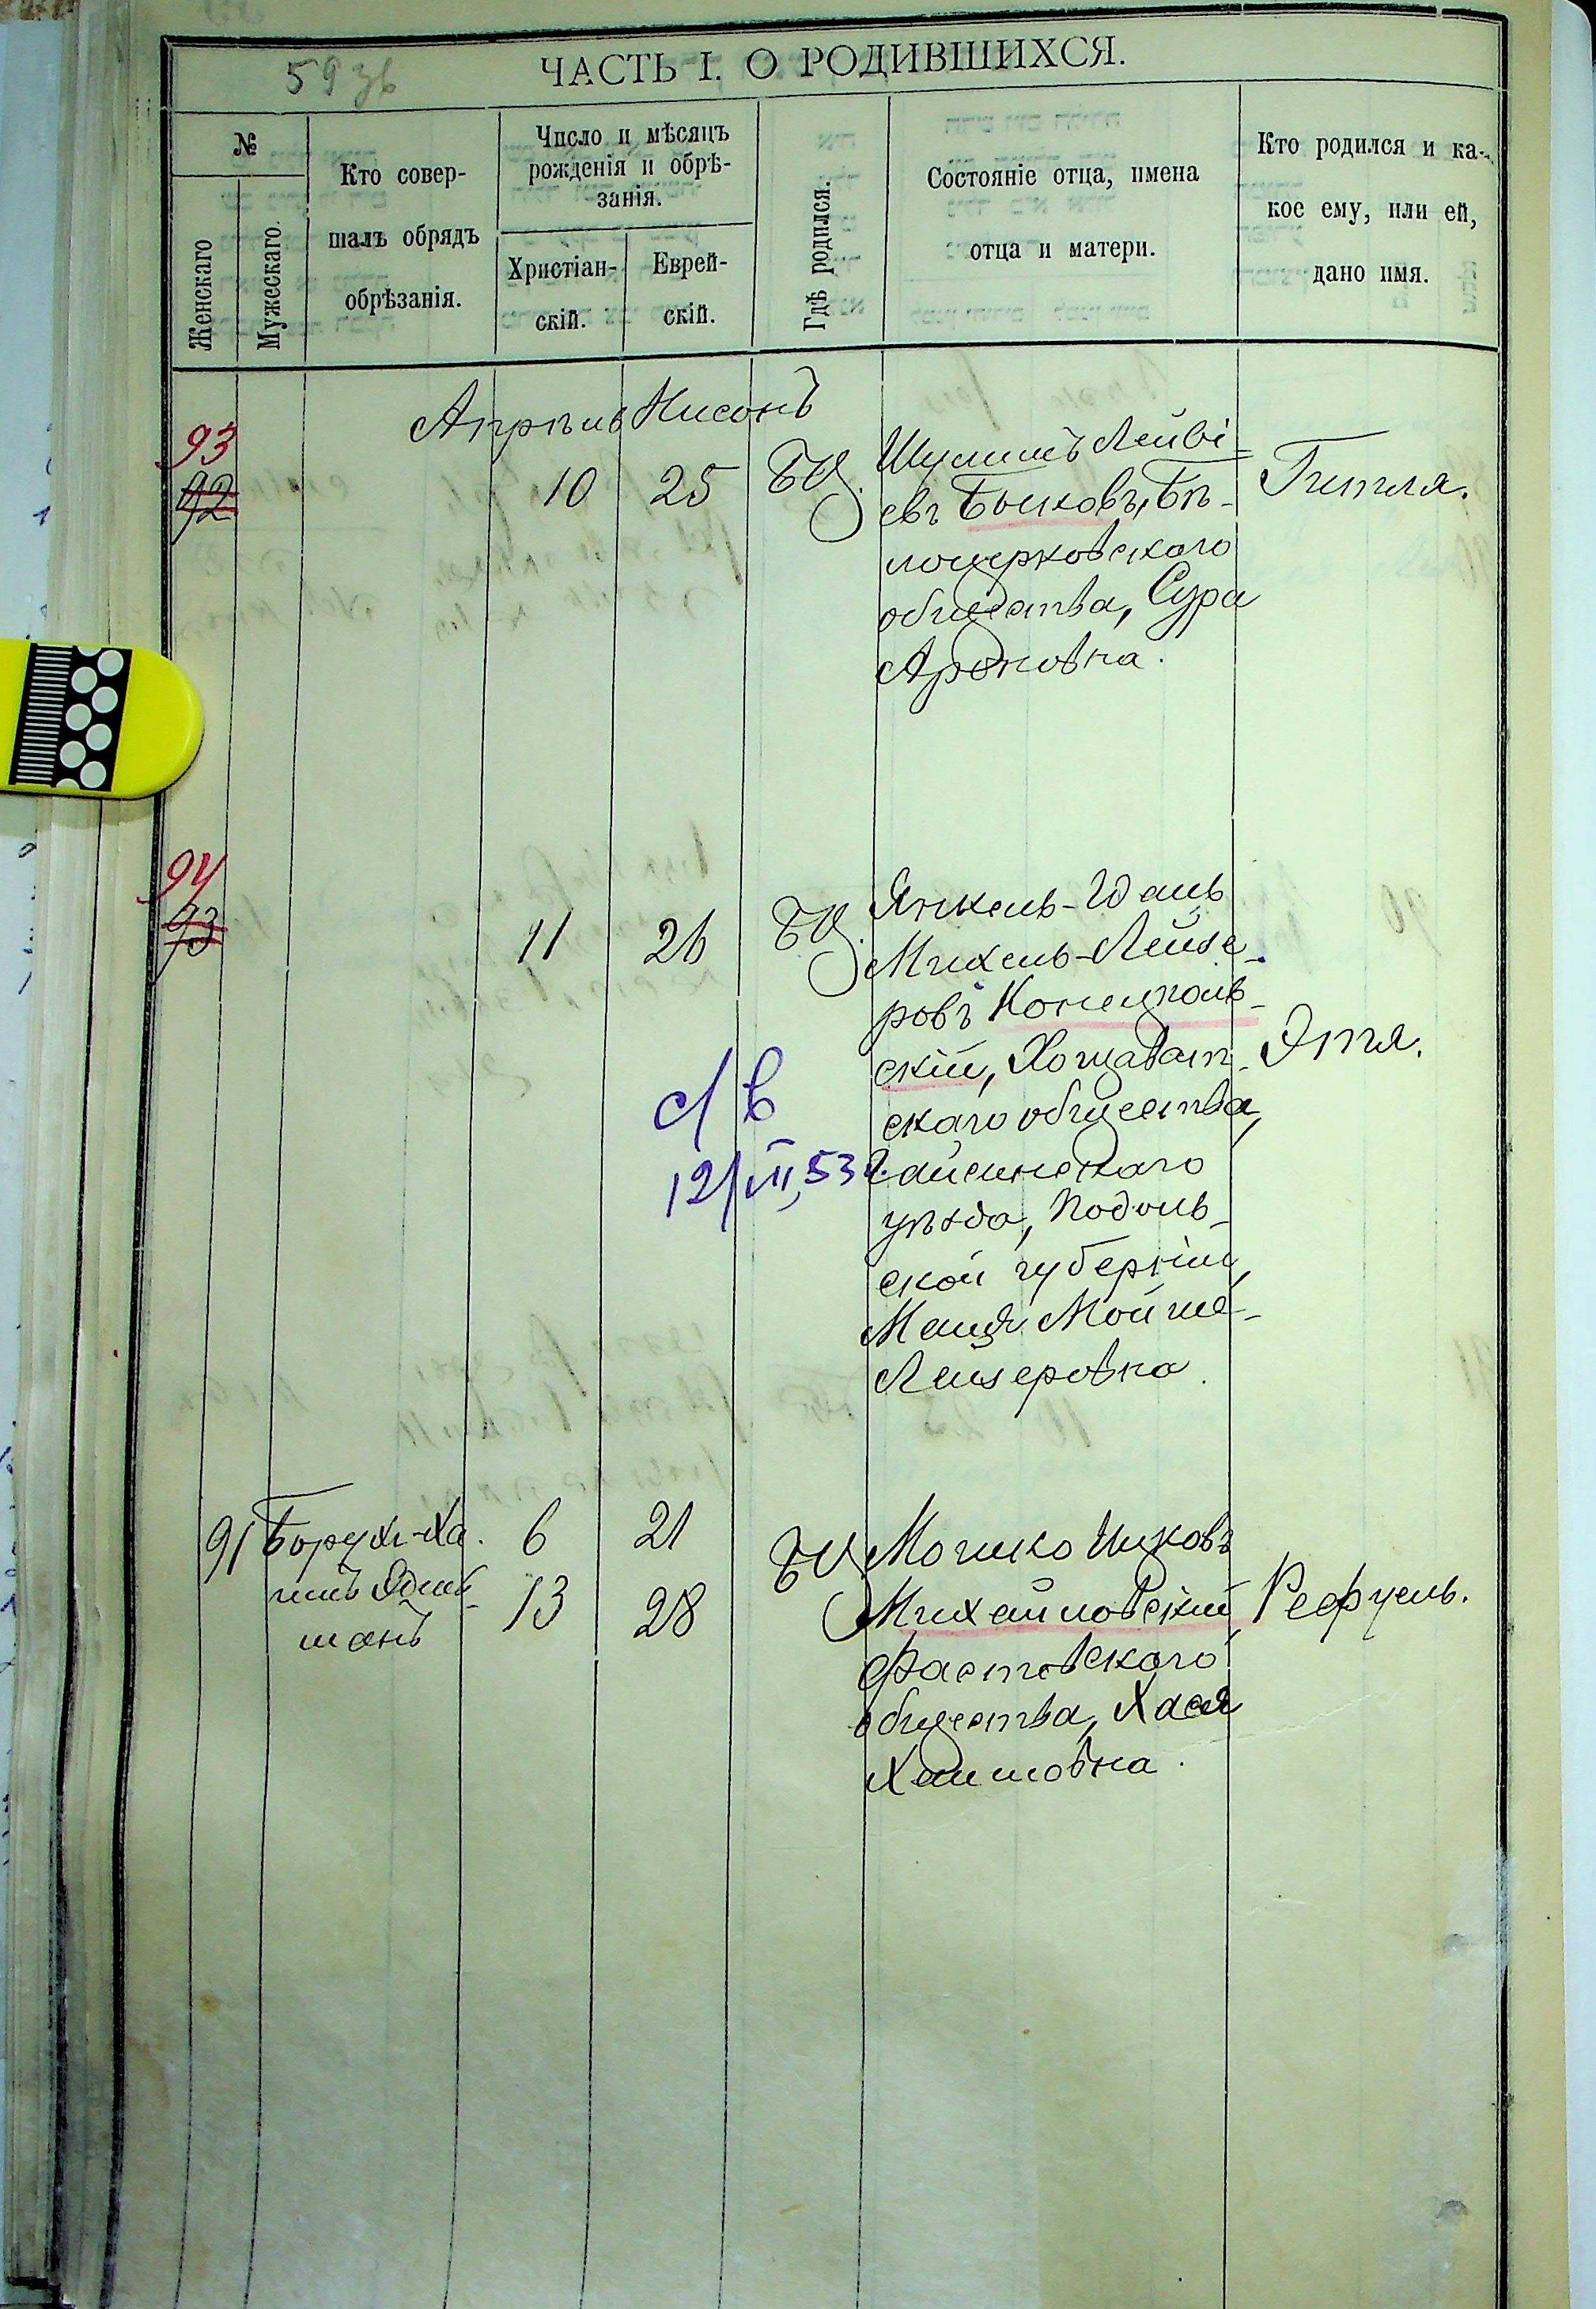 593б
ЧАСТЬ I. О РОДИВШИХСЯ.
№
Женскаго
Мужескаго.
Кто совер-
шалъ обрядъ
обрѣзанія.
Число и мѣсяцъ
рожденія и обрѣ-
занія.
Христіан-
скій.
Еврей-
скій.
Гдѣ родился.
Состояніе отца, имена
отца и матери.
Кто родился и ка-
кое ему, или ей,
дано имя.
Апрѣль Нисонъ
93
92
10 25 БЦ.
Шулимъ Лейві-
евъ Быковъ, Бѣ-
лоцерковскаго
общества, Сура
Ароновна.
Гитля.
94
93
11 26 БЦ.
Янкель-Идель
Михель-Лейзе-
ровъ Конецполь-
скій, Хощеват-
скаго общества,
Гайсинскаго
уѣзда, Подоль-
ской губерніи,
Мошко-
Лейзеровна.
Этя.
с/в
12/VII, 53 г.
91 Борухъ-Ха-
6 21
13 28
БЦ
Мошко Ицковъ
Михайловскій,
Фастовскаго
общества, Хася
Хаимовна.
Рефуель.